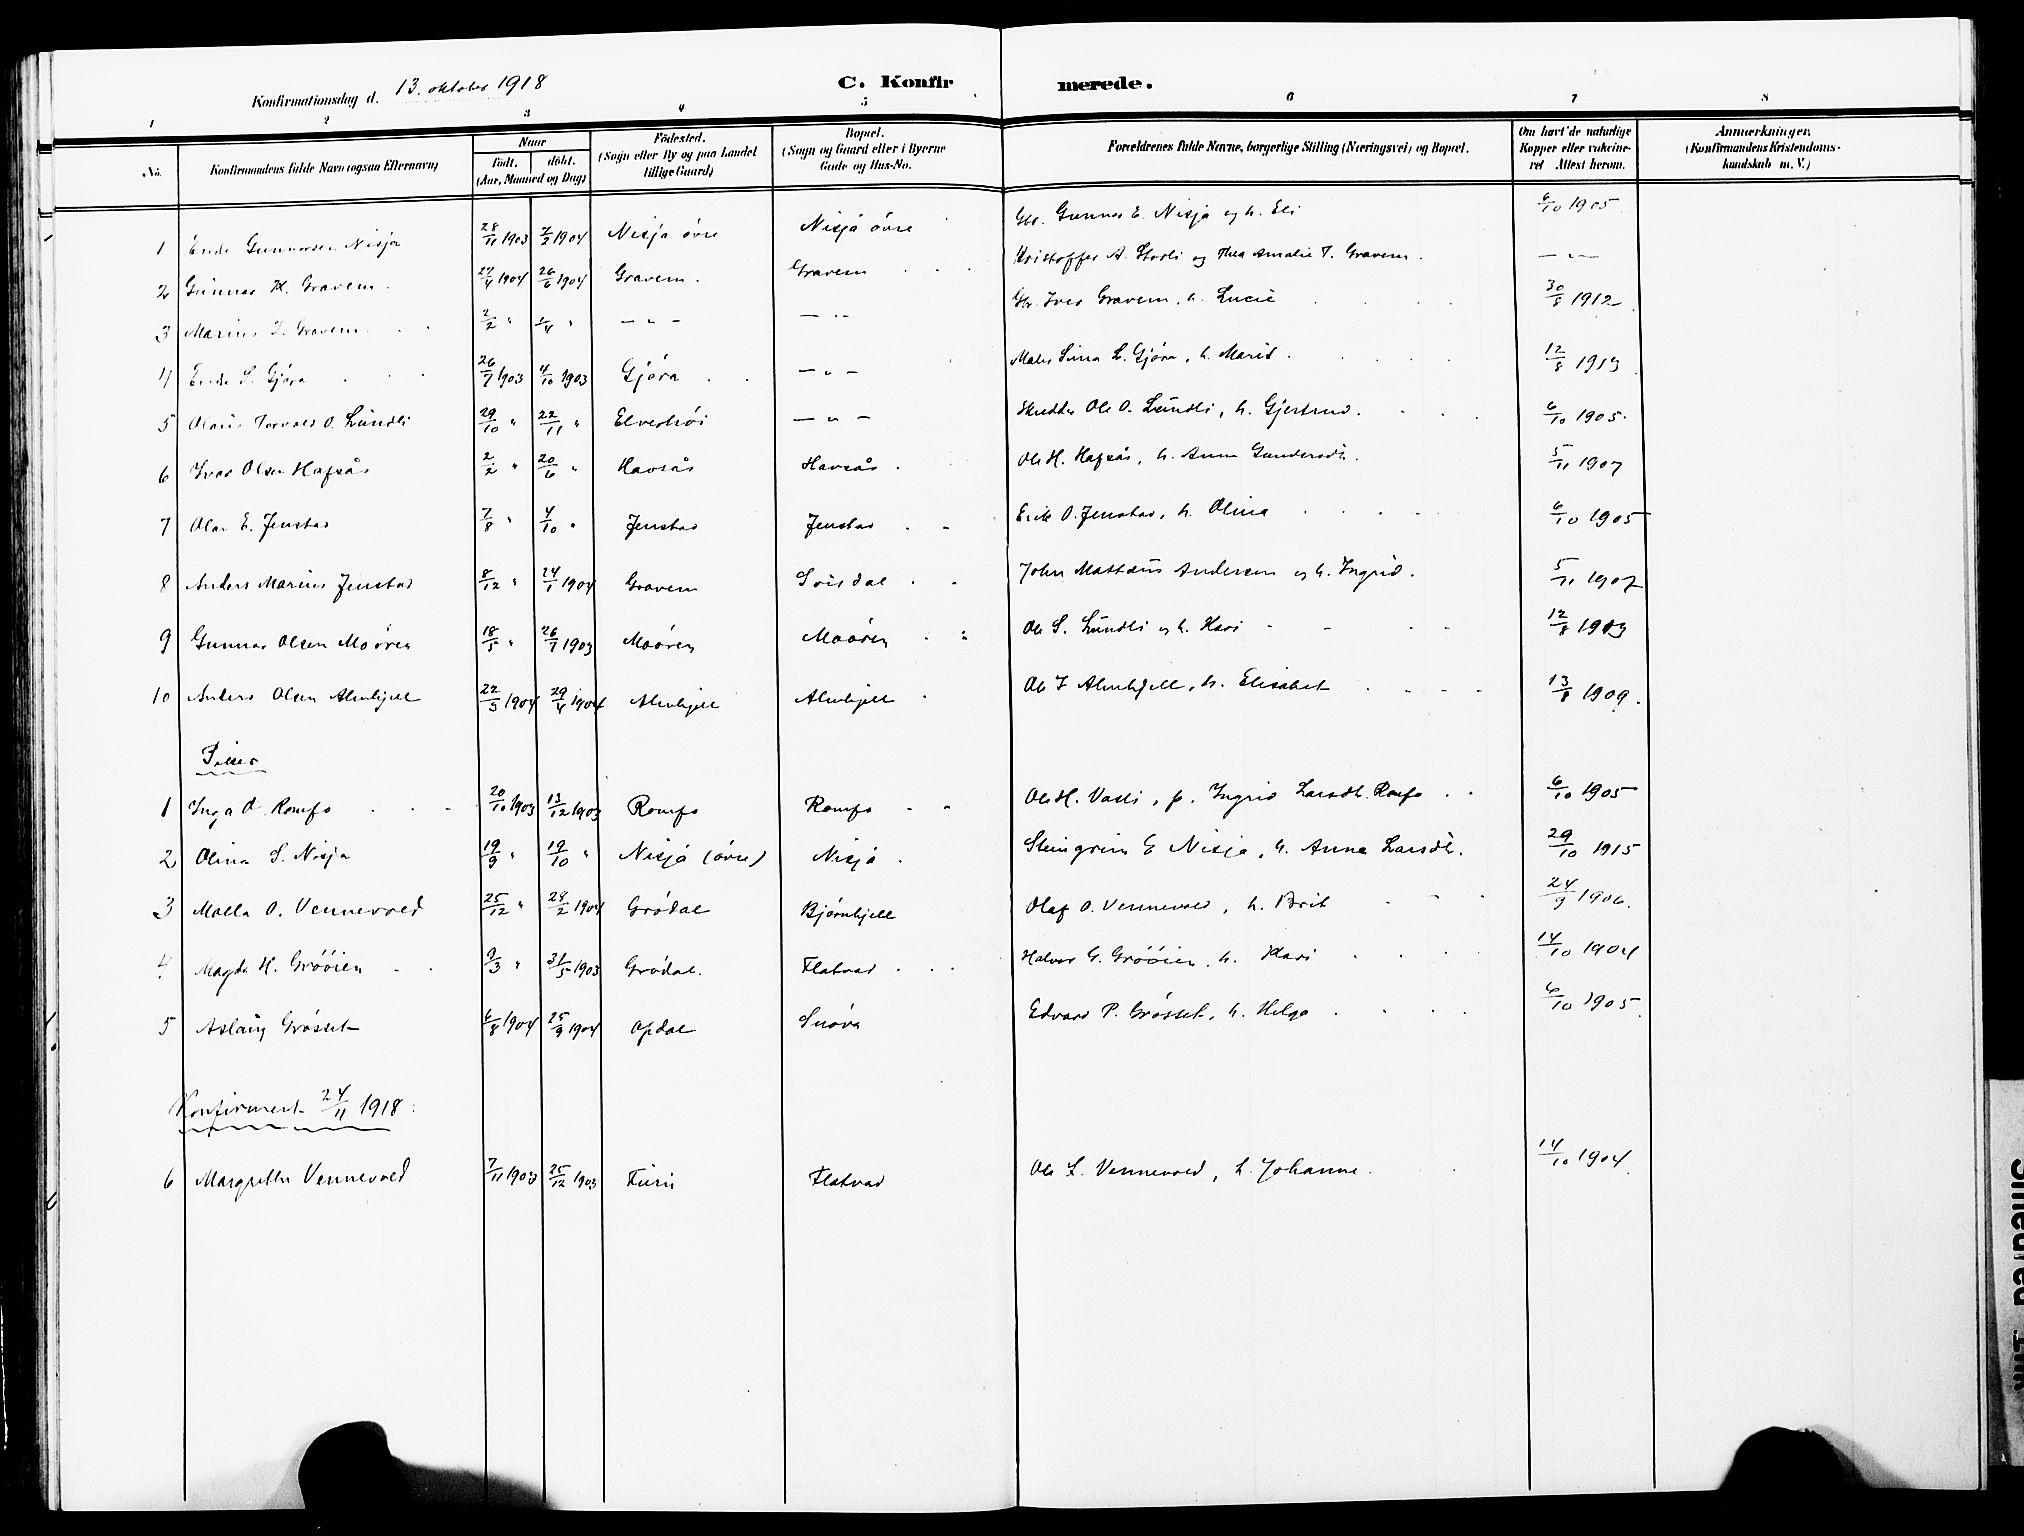 Konfirmationsdag d. 13. oktober 1918 C. Konfirmerede.
1 2 3 4 5 6 7 8
No. Konfirmandens fulde Navn (ogsaa Efternavn) Naar født. døbt. (Aar, Maaned og Dag) Fødested. (Sogn eller By og paa Landet tillige Gaard) Bopæl. (Sogn og Gaard eller i Byerne Gade og Hus-No. Forældrenes fulde Navne, borgerlige Stilling (Næringsvei) og Bopæl. Om havt de naturlige Kopper eller vaccineret Attest herom. Anmærkninger. (Konfirmandens Kristendomskundskab m. V.)
1 Gunnarsen Nisja 28/11 1903 7/2 1904 Nisja øvre Nisja øvre Gbr. Gunnar E. Nisja og h. Eli 6/10 1905
2 Gunnar K. Gravem 27/4 1904 26/6 1904 Gravem Gravem Kristoffer A. Storli og Thea Amalie T. Gravem. — " —
3 Marius I. Gravem 2/2 " 1/4 " — " — — " — Gbr. Iver Gravem, h. Lucie 30/8 1912
4 S. Gjøra 26/7 1903 4/10 1903 Gjøra — " — Maler L. Gjøra, h. Marit 12/8 1913
5 Olaus Torvald O. Lundli 29/10 " 22/11 " Elverhøi — " — Skredder Ole O. Lundli, h. Gjertrud 6/10 1905
6 Ivar Olsen Hafsås 2/2 " 20/6 " Havsås Havsås Ole H. Hafsås, h. Anne Gundersdt. 5/11 1907
7 Olav E. Jenstad 7/8 " 4/10 " Jenstad Jenstad Erik O. Jenstad, h. Olina 6/10 1905
8 Anders Marius Jenstad 8/12 " 24/1 1904 Gravem John Mattæus Andersen og h. Ingrid. 5/11 1907
9 Gunnar Olsen Moøren 18/5 " 26/7 1903 Moøren Moøren Ole S. Lundli og h. Kari 12/8
10 Anders Olsen Almhjell 22/3 1904 29/4 1904 Almhjell Almhjell Ole I Almhjell, h. Elisabet 13/8 1909.
Piker
1 Inga O. Romfo 20/10 1903 13/12 1903 Romfo Romfo Ole H. Vasli, p. Ingrid Larsdt. Romfo 6/10 1905
2 Olina S. Nisja 19/9 " 19/10 " Nisja (øvre) Nisja Steingrim E Nisja, h. Anna Larsdt. 29/10 1915
3 Malla O. Vennevold 25/12 " 28/2 1904 Grødal Bjørnhjell Olaf O. Vennevold, h. Brit 24/9 1906.
4 Magda H. Grøøien 9/3 " 31/5 1903 Grødal. Flatvad Halvor G. Grøøien, h. Kari 14/10 1904
5 Aslaug Grøsset 6/8 1904 25/9 1904 Opdal Snøva Edvard P. Grøsset, h. Helga 6/10 1905
Konfirmert 24/11 1918:
6 Margrethe Vennevold 7/11 1903 25/12 1903 Furu Flatvad Ole L. Vennevold, h. Johanne. 14/10 1904.